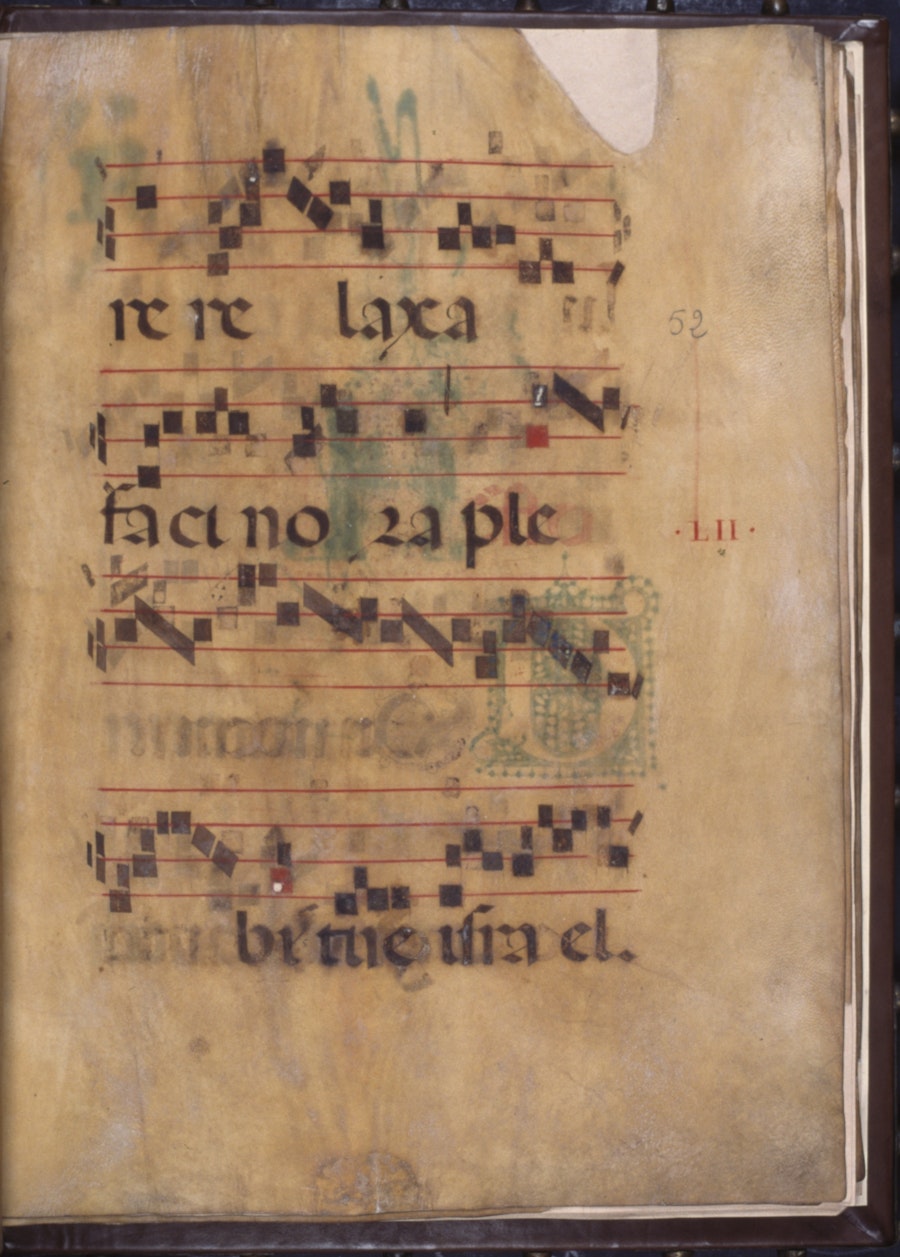 re re laxa
52
faci no ra ple
· LII ·
bi tue isra el.